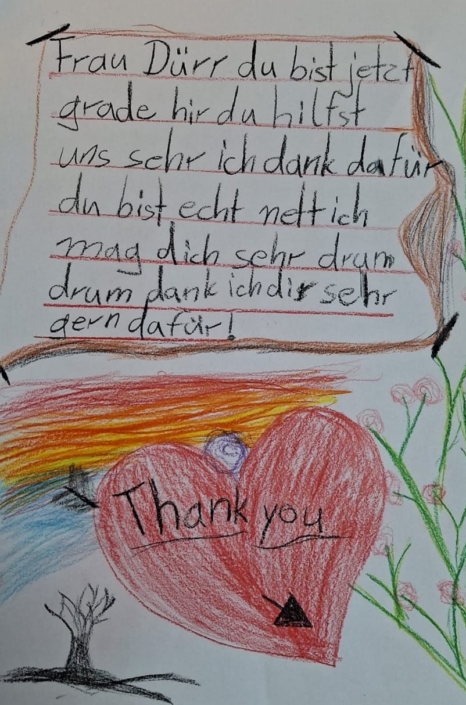 Frau Dürr du bist jetzt
grade hir du hilfst
uns sehr ich dank dafür
du bist echt nett ich
mag dich sehr drum
drum dank ich dir sehr
gern dafür!
Thank you